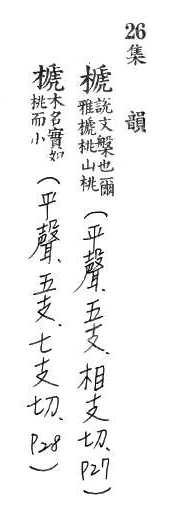 26集韻
榹說文槃也爾雅榹桃山桃（平聲、五支、相支切、P27）
榹木名實如桃而小（平聲、五支、七支切、P28）